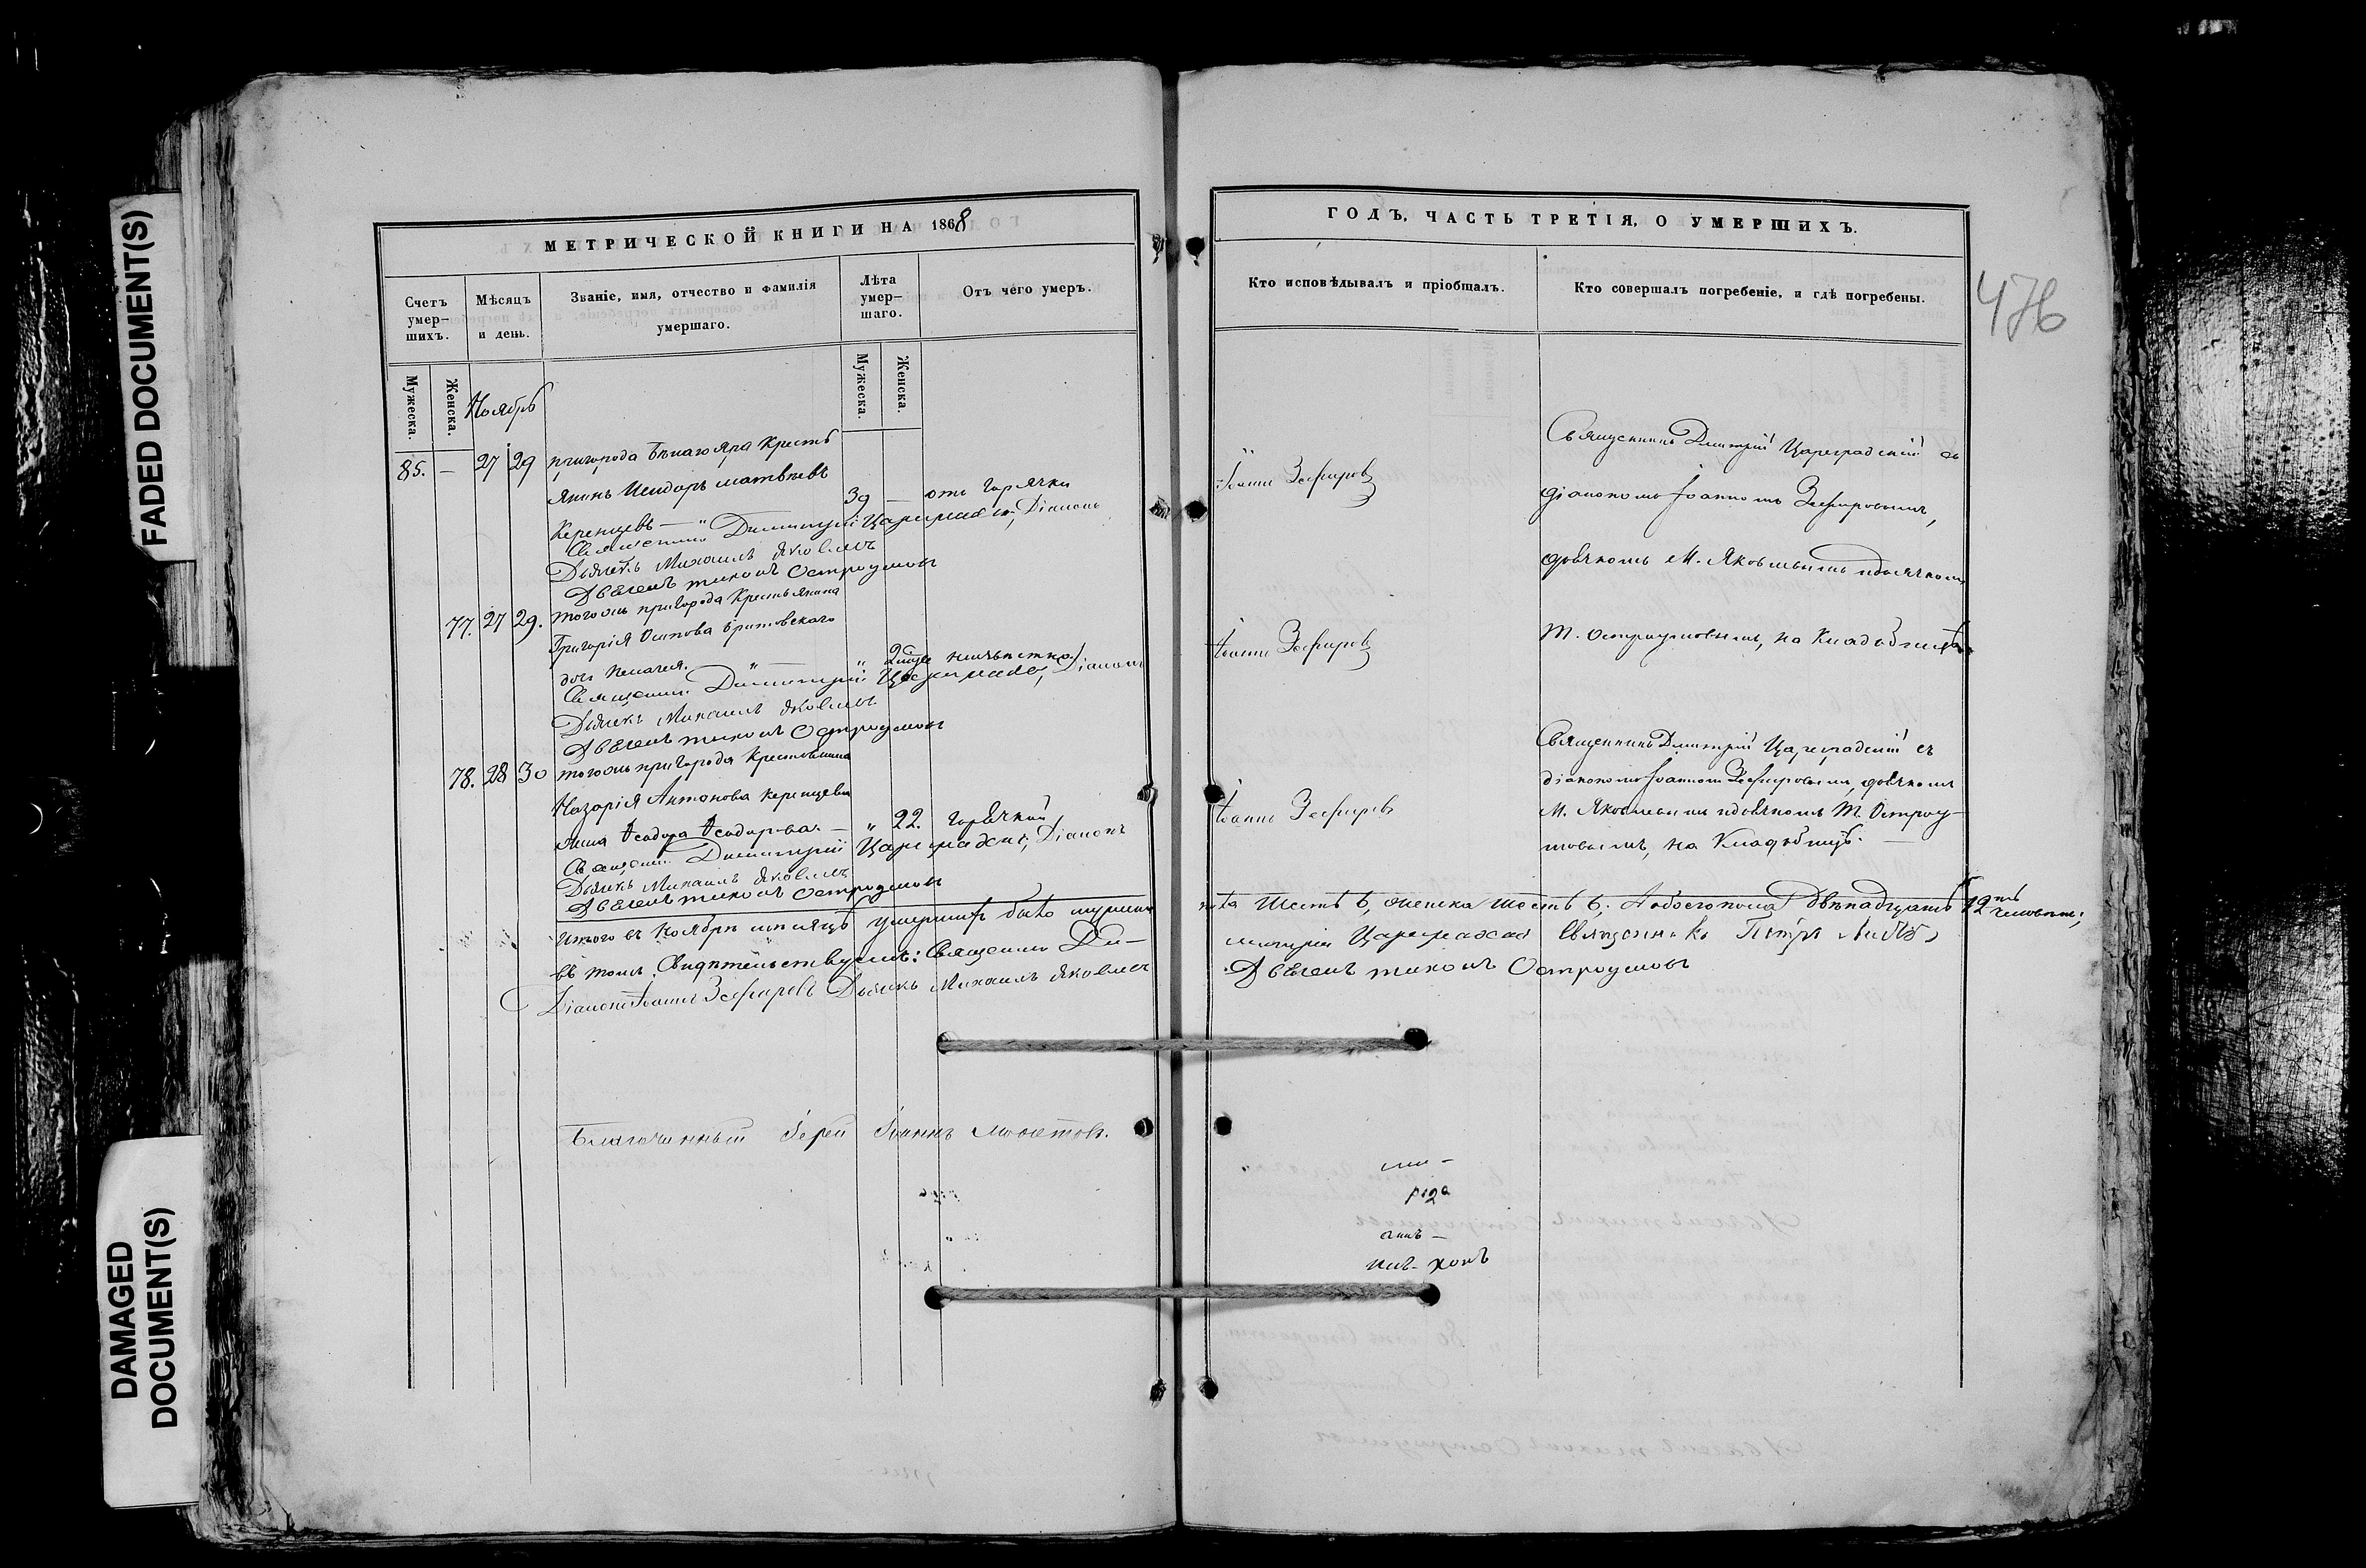 FADED DOCUMENT(S)
DAMAGED
DOCUMENT(S)
МЕТРИЧЕСКОЙ КНИГИ НА 1868
Счетъ
умер-
шихъ.
Мѣсяцъ
и день.
Званіе, имя, отчество и фамилія
умершаго.
Лѣта
умер-
шаго.
Отъ чего умеръ.
Мужеска.
Женска.
Мужеска.
Женска.
Ноябрь
85. — 27 29 пригорода Бѣлаго Яра Кресть
янинъ Исидоръ Матвѣевъ
Керенцевъ — 39 — отъ горячки
Священникъ Димитрій Цареградскій, Діаконъ
Дьячекъ Михаилъ Яковлевъ
Дьячекъ Тихонъ Остроумовъ
77. 27 29. тогожъ пригорода Крестьянина
Григорія Осипова
дочь Пелагея. "
Священникъ Димитрій Цареградскій, Діаконъ
Дьячекъ Михаилъ Яковлевъ
Дьячекъ Тихонъ Остроумовъ
78. 28 30 тогожъ пригорода Крестьянина
Назарія Антонова Керенцева
жена Ѳеодора Ѳеодорова. — " 22. горячкой
Священникъ Димитрій Цареградскій, Діаконъ
Дьячекъ Михаилъ Яковлевъ
Дьячекъ Тихонъ Остроумовъ
Итого въ Ноябрѣ мѣсяцѣ умершихъ было мужеска
въ томъ Свидѣтельствуемъ: Священникъ Ди-
Діаконъ Іоаннъ Зефировъ Дьячекъ Михаилъ Яковлевъ
Благочинный Іерей Іоаннъ
ГОДЪ, ЧАСТЬ ТРЕТІЯ, О УМЕРШИХЪ.
476
Кто исповѣдывалъ и пріобщалъ.
Кто совершалъ погребеніе, и гдѣ погребены.
Іоаннъ Зефировъ
Священникъ Димитрій Цареградскій съ
діакономъ Іоанномъ Зефировымъ,
дьячкомъ М. Яковлевымъ и дьячкомъ
Іоаннъ Зефировъ
Т. Остроумовымъ, на Кладбищѣ.
Священникъ Димитрій Цареградскій съ
діакономъ Іоанномъ Зефировымъ, дьячкомъ
Іоаннъ Зефировъ
М. Яковлевымъ и дьячкомъ Т. Остроу-
мовымъ, на Кладбищѣ. —
пола Шесть 6, женска шесть 6, А обоего пола двѣнадцать 12 человѣкъ;
митрій Цареградскій Священникъ Петръ
Дьячекъ Тихонъ Остроумовъ